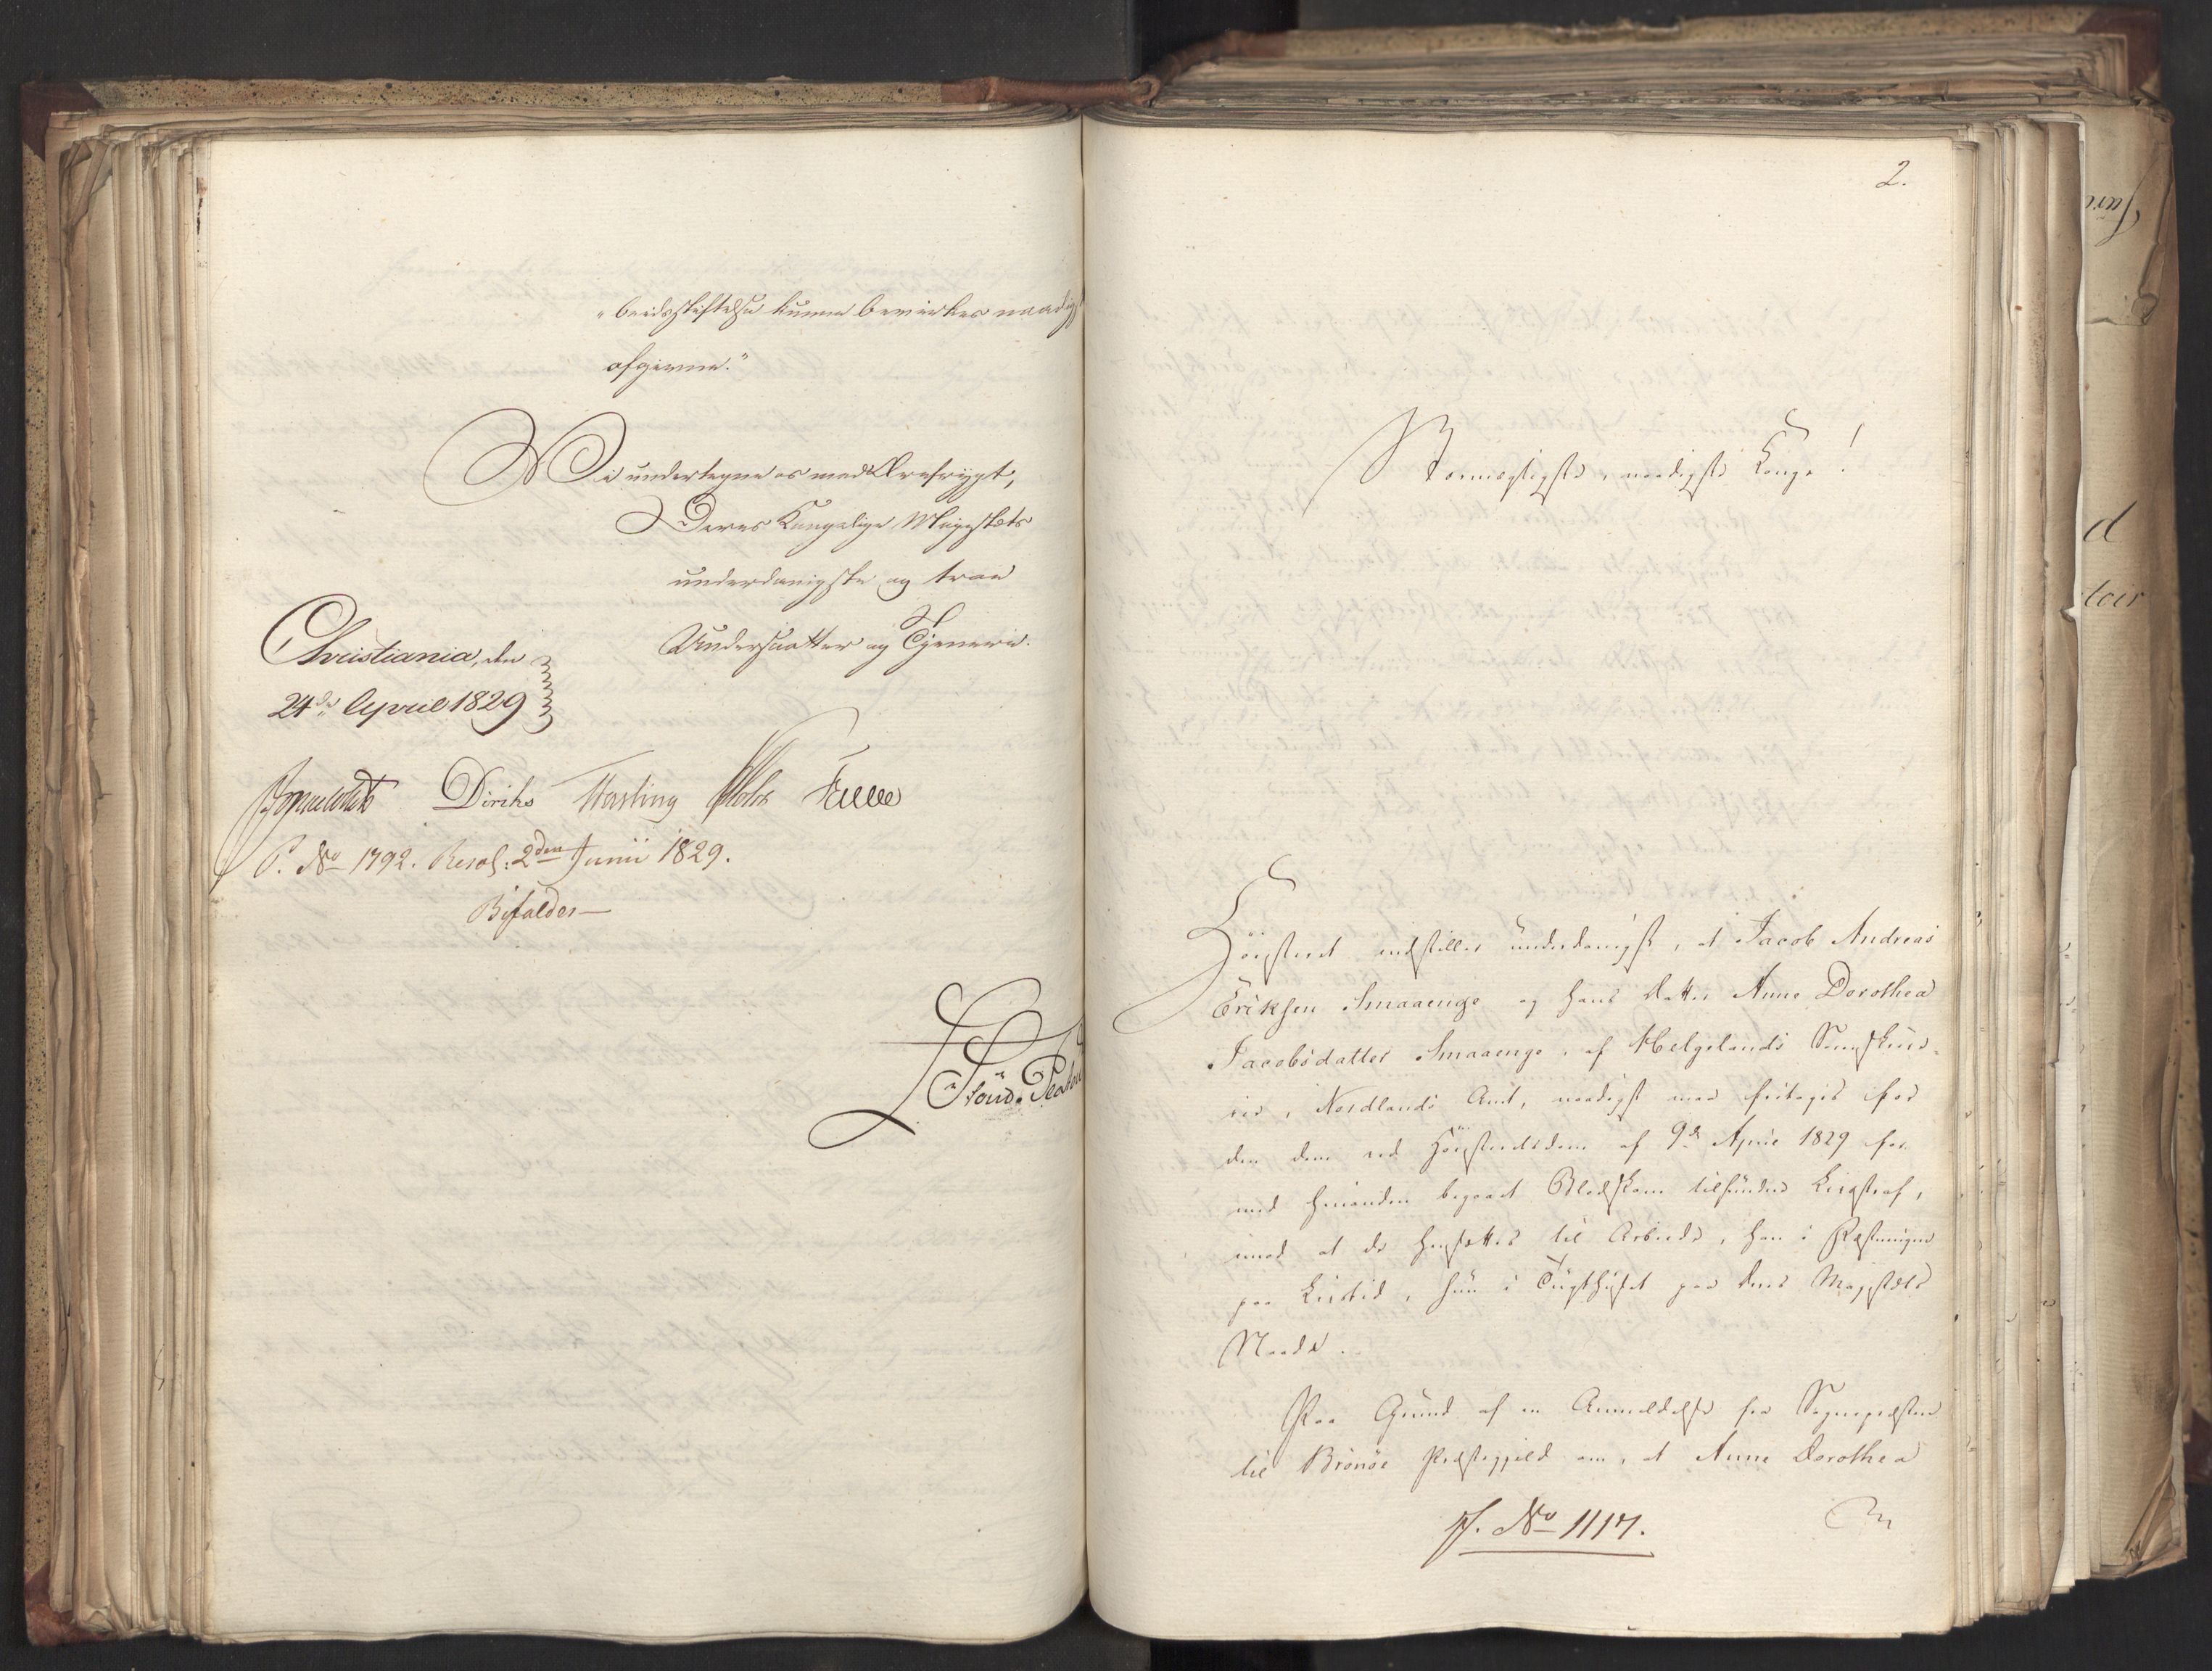 "beidsskiftelse kunne bevirkes naadigst
afgivne."
Vi undertegne os med Ærefrygt,
Deres Kongelige Majestæts
underdanigste og troe
Undersaatter og Tjenere.
Christiania, den
24de April 1829
Diriks Fasting
P. No 1792. Resol: 2den Junii 1829.
Bifaldes
2.
Stormægtigste, naadigste Konge!
Höiesteret indstiller underdanigst, at Jacob Andreas
Eriksen Smaaenge og hans Datter Anne Dorothea
Jacobsdatter Smaaenge, af Helgelands Sorenskriv-
rie, Nordlands Amt, naadigst maa fritages for
den dem ved Höiesteretsdom af 9de April 1829 for
med hinanden begaaet Blodskam tilfundne Livsstraf,
imod at de hensættes til Arbeide, han i Fæstningen
paa Livstid, hun i Tugthuset paa Deres Majestæts
Naade.
Paa Grund af en Anmeldelse fra Sognepræsten
til Brönöe Præstegjeld om, at Anne Dorothea
J. No 1117.